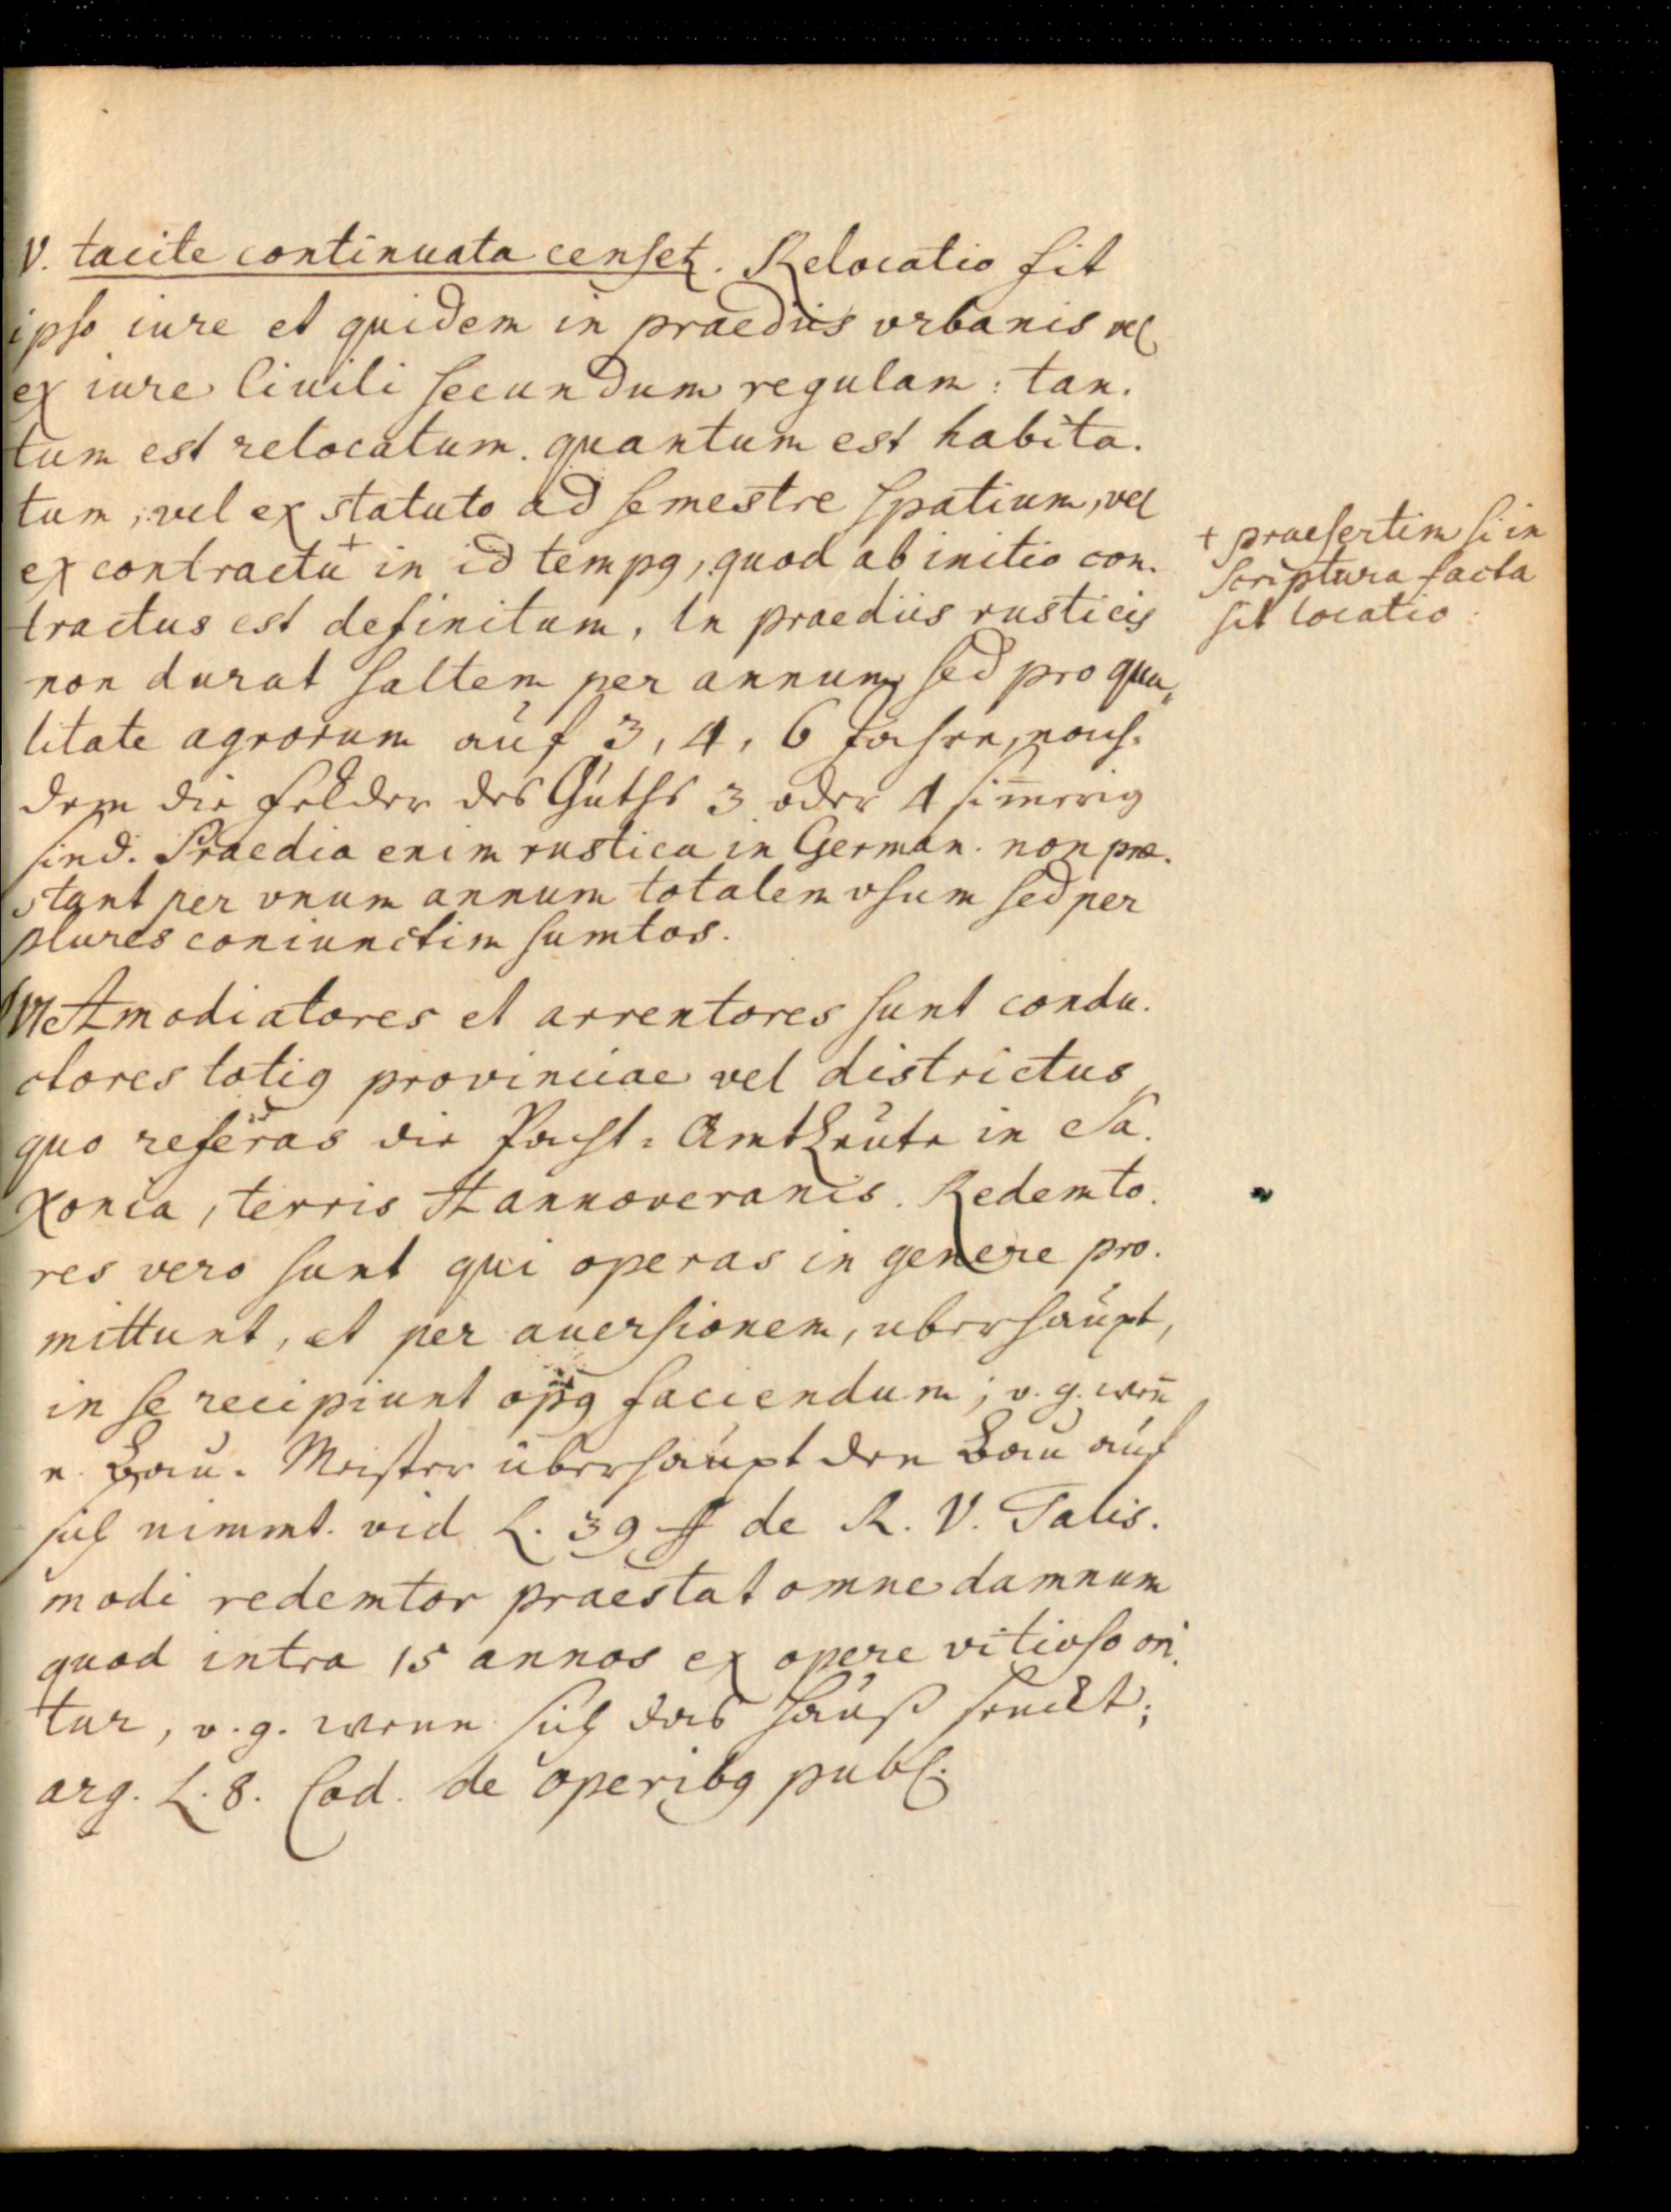 V. tacite continuata censetꝛ. Relocatio fit
ipso iure et quidem in praediis vrbanis vel
ex iure Ciuili secundum regulam: tan-
tum est relocatum. quantum est habita-
tum, vel ex statuto ad semestre spatium, vel
ex contractu + in id tempꝰ, quod ab initio con-
tractus est definitum, In praediis rusticis
non durat saltem per annum, sed pro qua-
litate agrorum auf 3, 4, 6 Jahre, nach-
dem die Felder des Guths 3 oder 4
sind. Praedia enim rustica in German. non prae-
stant per vnum annum totalem vsum sed per
plures coniunctim sumtos.
+ praesertim si in
scriptura facta
sit locatio.
VI Amodiatores et arrentores sunt condu-
ctores totiꝰ provinciae vel districtus
quo referas die Pacht-Amtleute in Sa-
xonia, terris Hannoveranis. Redemto-
res vero sunt qui operas in genere pro-
mittunt, et per auersionem, uberhaupt,
in se recipiunt opꝰ faciendum; v. g. wen̄
e. Bau-Meister überhaupt den Bau auf
sich nimmt. vid L. 39 ff de R. V. Talis-
modi redemtor praestat omne damnum
quod intra 15 annos ex opere vitioso ori-
tur, v. g. wenn sich das Hauß senckt;
arg. L. 8. Cod. de operibꝰ publ.